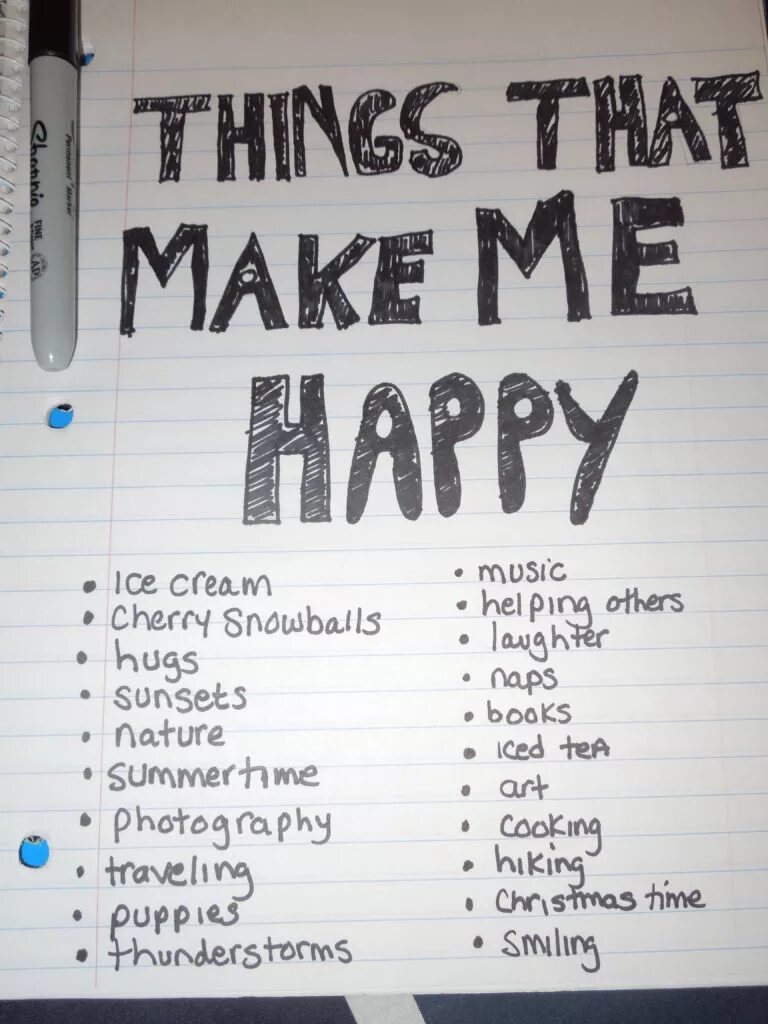 THINGS THAT
MAKE ME
HAPPY
• Ice cream
• Cherry Snowballs
• hugs
• sunsets
• nature
• summertime
• photography
• traveling
• puppies
• thunderstorms
• music
• helping others
• laughter
• naps
• books
• Iced teA
• art
• cooking
• hiking
• Christmas time
• smiling
Sharpie
FINE
Permanent Marker
AP